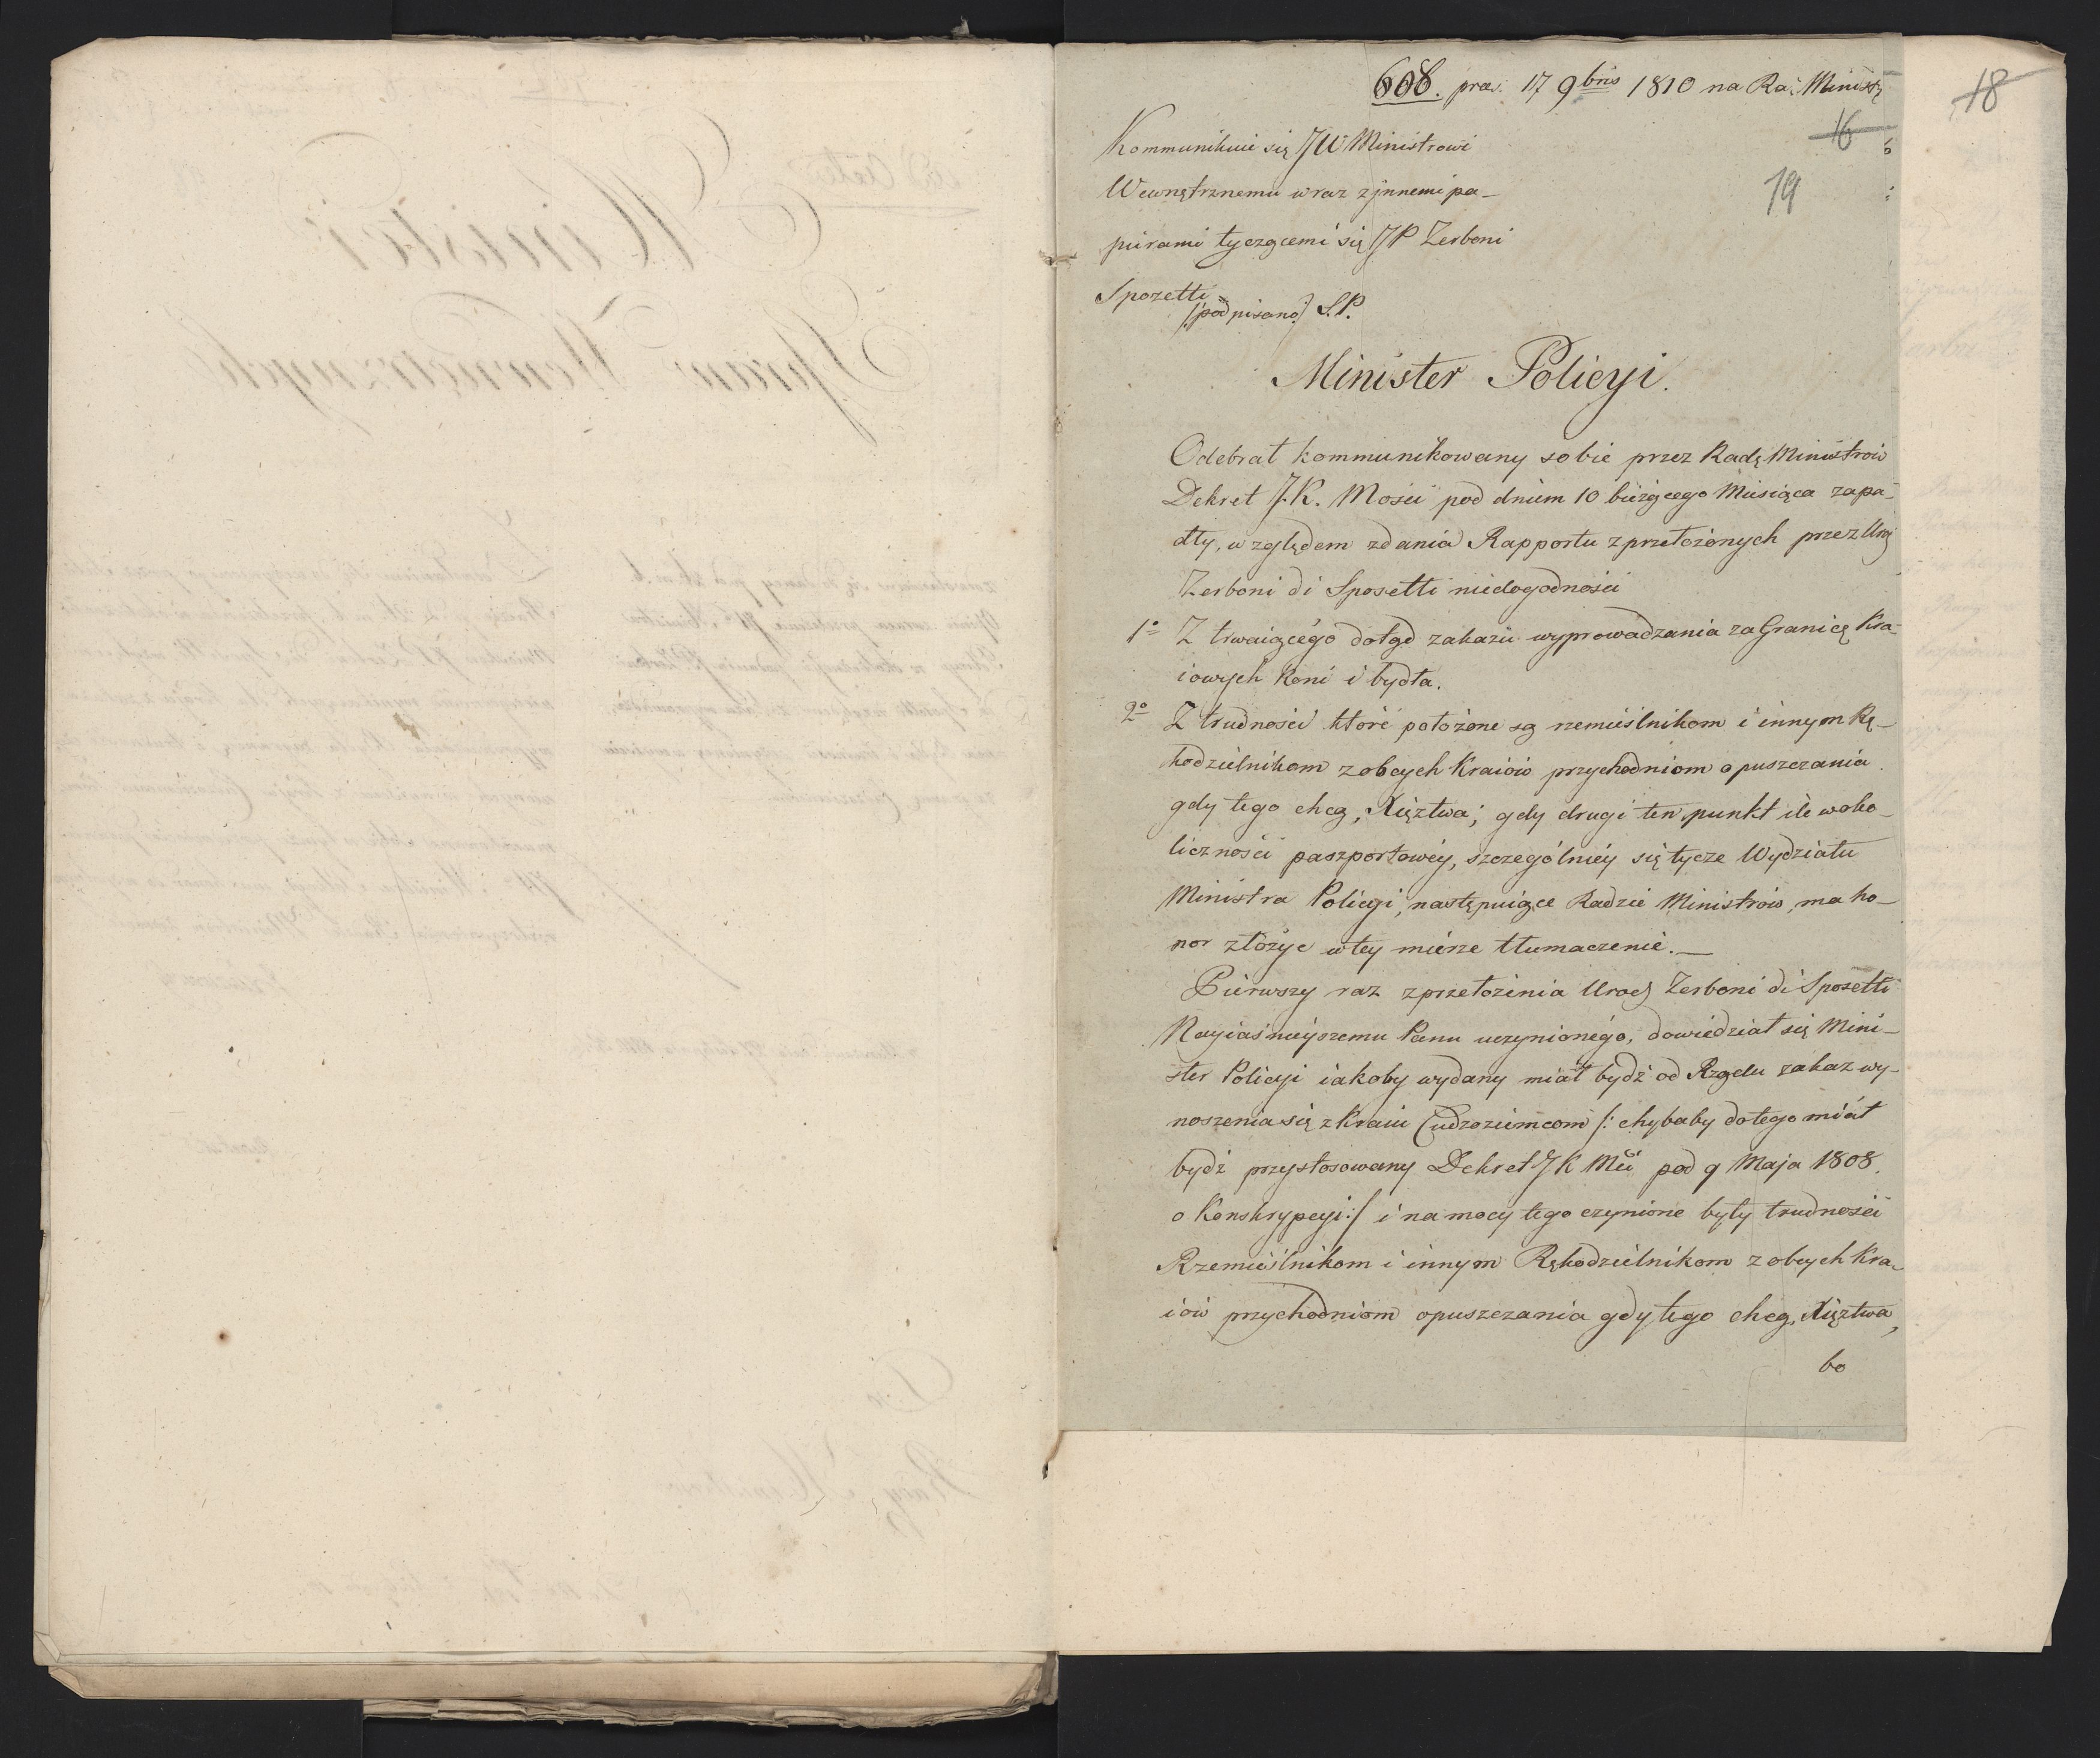 608. prae. 17 9bris 1810 na Ra: Ministr
18
16
19
Kommunikuie się JW Ministrowi
Wewnętrznemu wraz z jnnemi pa-
pierami tyczącemi się JP Zerboni
Spozetti
/:podpisano:/ S.P.
Minister Policyi.
Odebrał kommunikowany sobie przez Radę Ministrów
Dekret J.K. Mości pod dniem 10 bieżącego Miesiąca zapa-
dły, względem zdania Rapportu z przełożonych przez Uro
Zerboni di Sposetti niedogodności
1o Z trwaiącego dotąd zakazu wyprowadzania za Granicę Kra-
iowych Koni i bydła.
2o Z trudności które położone są remieślnikom i innym Rę-
kodzielnikom z obcych Kraiów przychodniom opuszczania
gdy tego chcą, Xięztwa; gdy drugi ten punkt ile w oko-
liczności paszportowéy, szczególniéy się tycze Wydziału
Ministra Policyi, następuiące Radzie Ministrów, ma ho-
nor złożyc w tey mierze tłumaczenie.
Pierwszy raz z przełożenia Urod Zerboni di Sposetti
Nayiaśnieyszemu Panu uczynionégo, dowiedział się Mini-
ster Policyi iakoby wydany miał bydź od Rządu zakaz wy-
noszenia się z Kraiu Cudzoziemcom /: chybaby do tego miał
bydź przystosowany Dekret J K Mci pod 9 Maja 1808.
o Konskrypcyi:/ i na mocy tego czynione były trudności
Rzemieślnikom i innym Rękodzielnikom z obcych Kra-
iów przychodniom opuszczania gdy tego chcą, Xięztwa,
bo